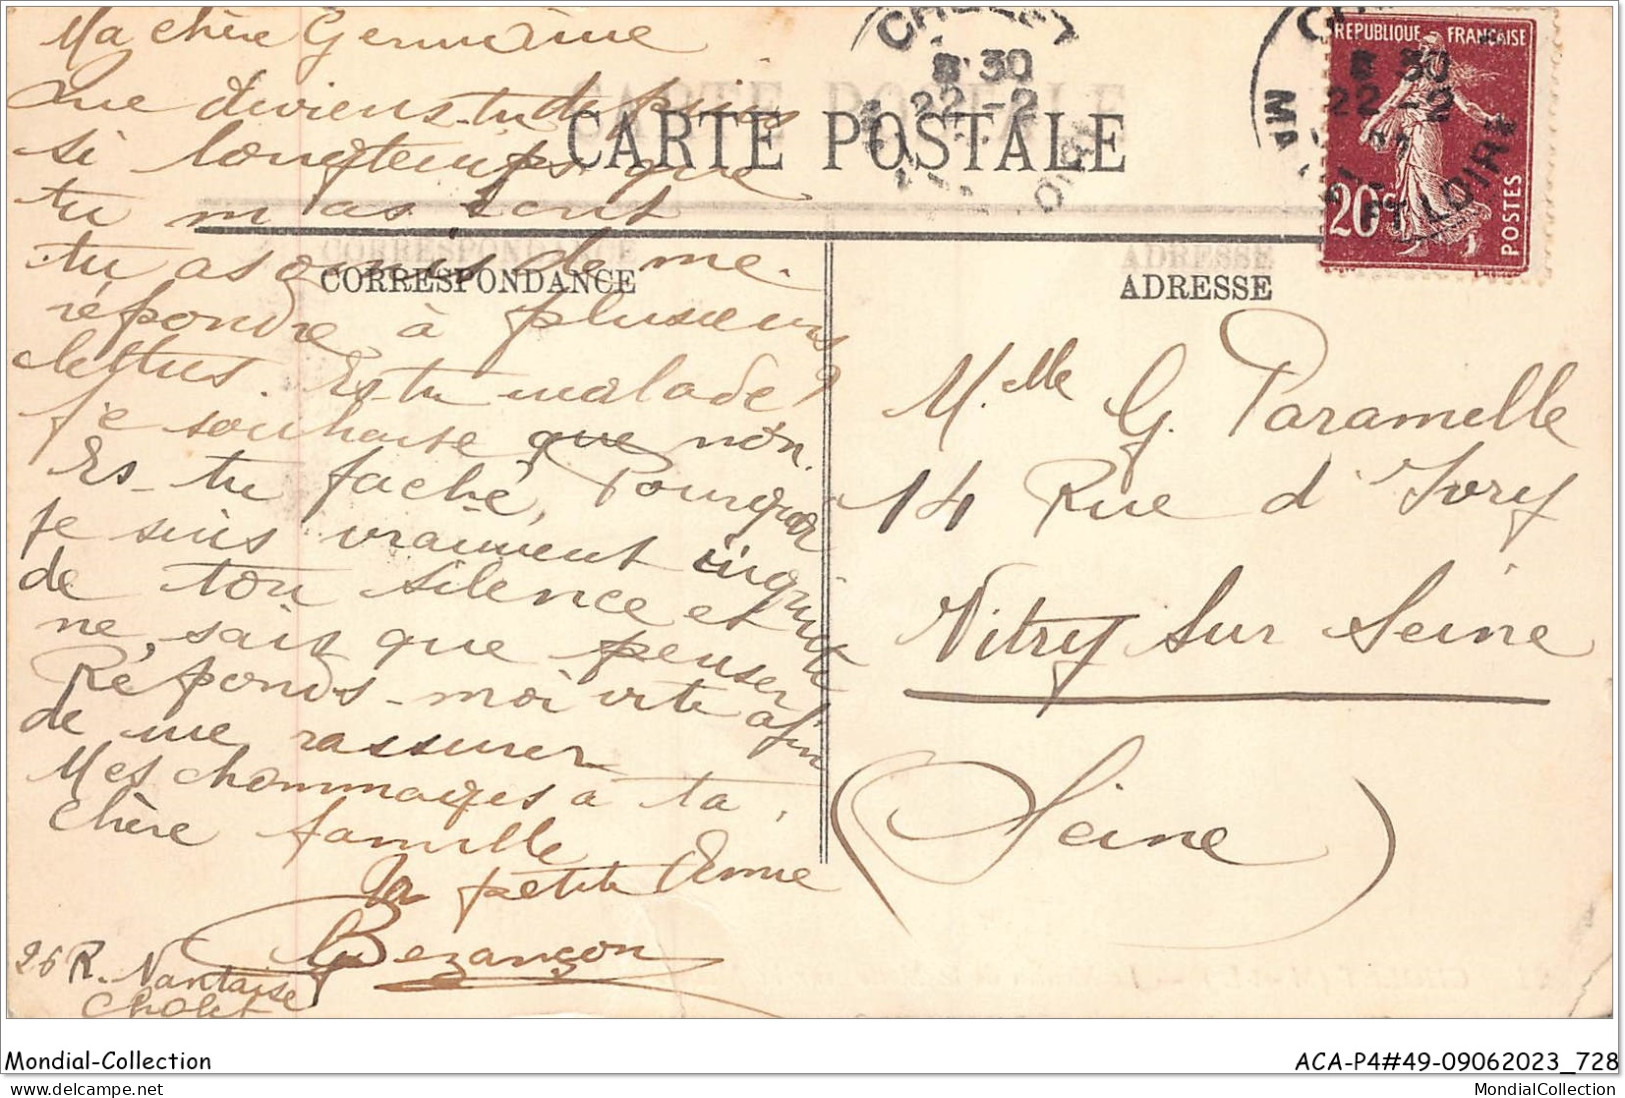 Ma chère Germaine
Que deviens-tu depuis
si longtemps que
tu m as
tu as omis de me
répondre à plusieurs
lettres. Es-tu malade?
je souhaite que non.
Es-tu faché, Pourquoi
je suis vraiment inquiète
de ton silence et
ne sais que penser
Réponds-moi vite afin
de me rassurer
Mes hommages à ta
chère famille
Ta petite Amie
Bezançon
26 R. Nantaise
Cholet
CARTE POSTALE
CORRESPONDANCE
ADRESSE
CHOLET
8 30
22 -2
8 30
22 -2
ET LOIRE
REPUBLIQUE FRANÇAISE
20c
POSTES
M.elle G. Paramelle
14 Rue d'Ivry
Vitry sur Seine
(Seine)
Mondial-Collection
ACA-P4#49-09062023_728
delcampe.net
MondialCollection